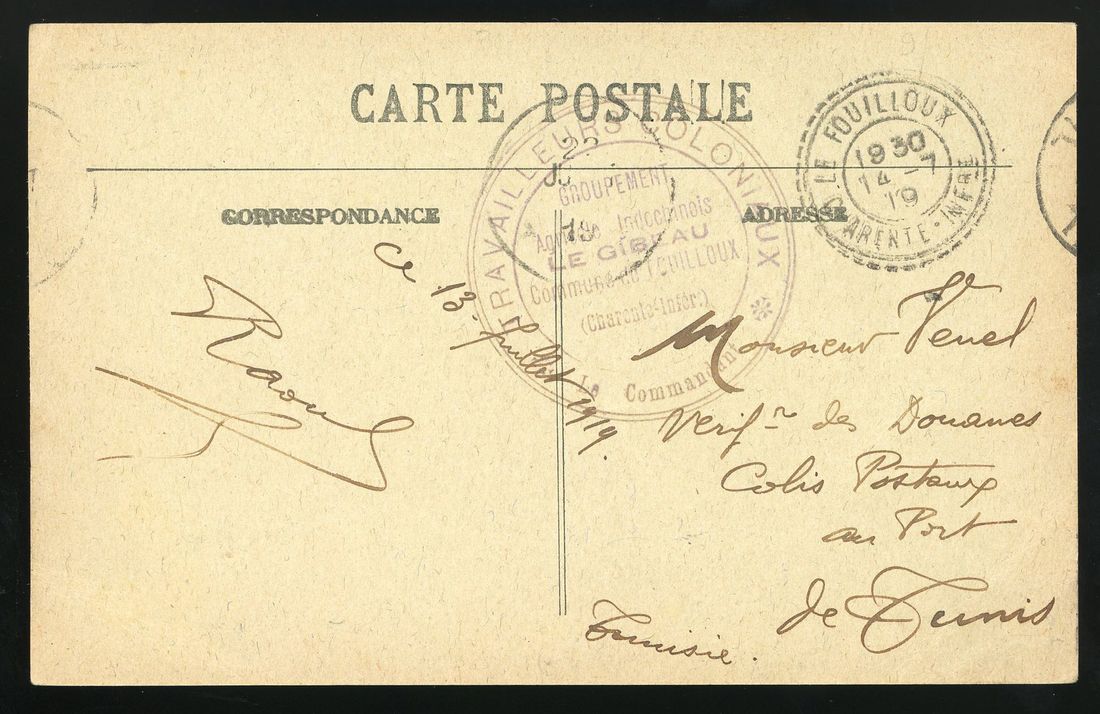 CARTE POSTALE
CORRESPONDANCE
ADRESSE
LE FOUILLOUX
19 30
14 - 7
19
CHARENTE-INFRE
TRAVAILLEURS COLONIAUX
GROUPEMENT
Agricole Indochinois
LE GIBEAU
Commune de FOUILLOUX
(Charente-Infér.)
Le Commandant
19
ce 13 Juillet 1919.
Raoul
Monsieur Venel
Verif.r des Douanes
Colis Postaux
au Port
de Tunis
Tunisie.